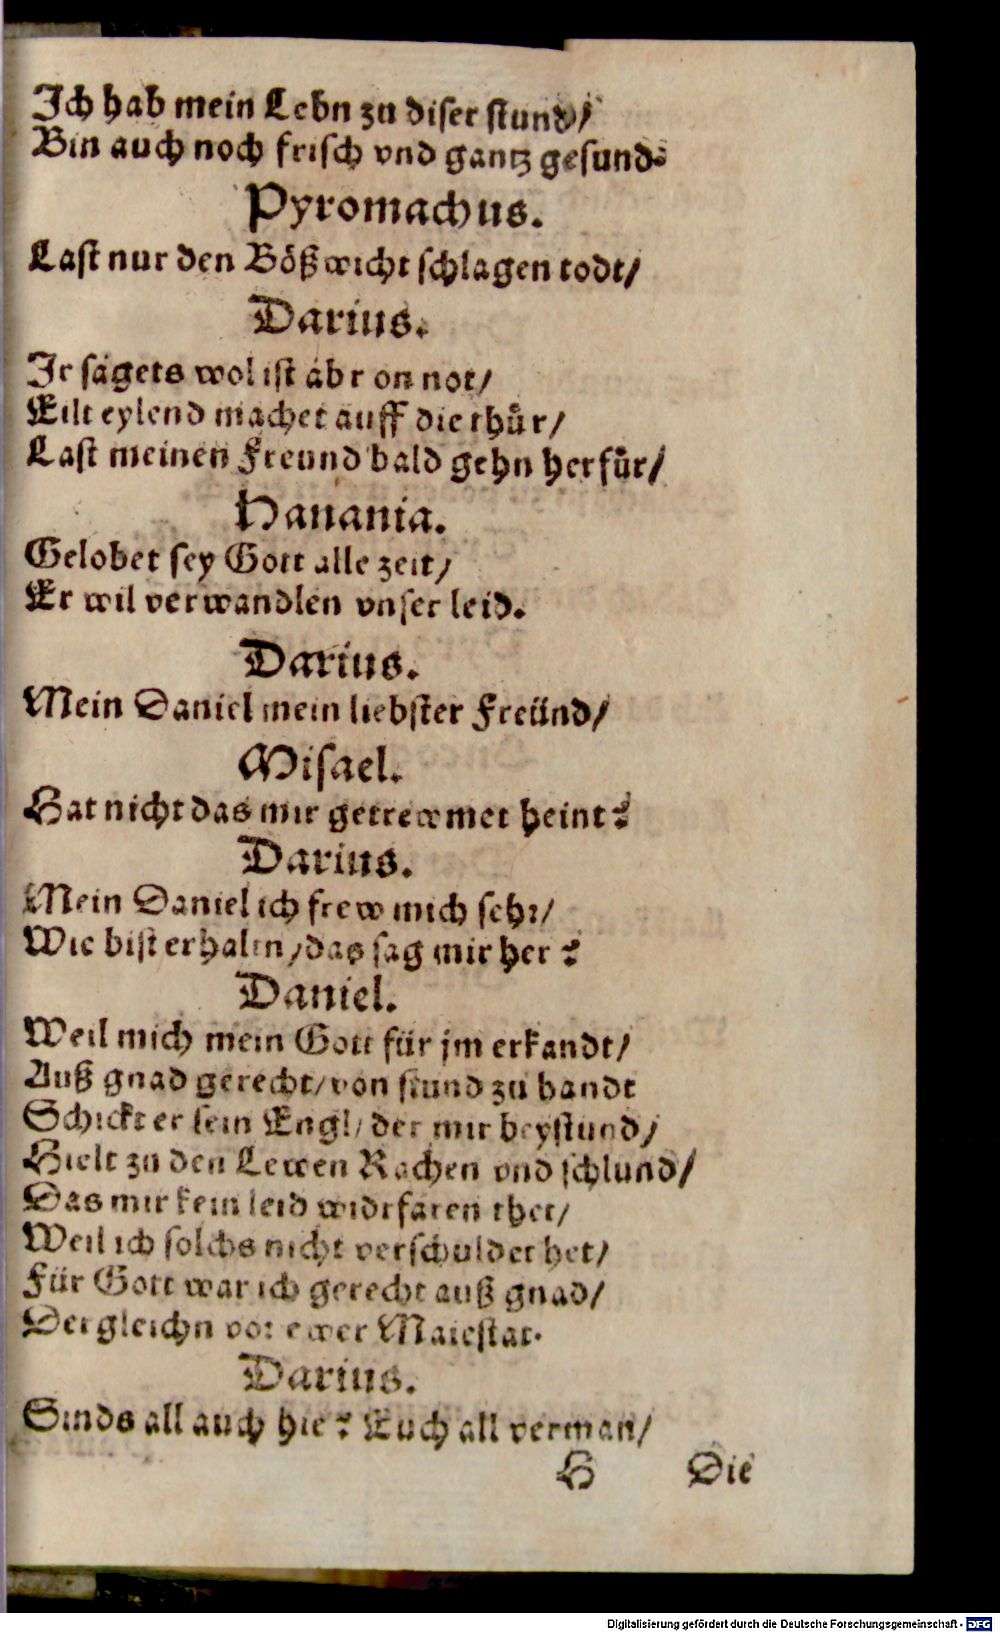 Ich hab mein Lebn zu diser stund/
Bin auch noch frisch vnd gantz gesund.
Pyromachus.
Last nur den Bößwicht schlagen todt/
Darius.
Ir sagets wol ist abr on not/
Eilt eylend machet auff die thür/
Last meinen Freund bald gehn herfür/
Hanania.
Gelobet sey Gott alle zeit/
Er wil verwandlen vnser leid.
Darius.
Mein Daniel mein liebster Freünd/
Misael.
Hat nicht das mir getrewmet heint?
Darius.
Mein Daniel ich frew mich sehr/
Wie bist erhaltn/das sag mir her?
Daniel.
Weil mich mein Gott für jm erkandt/
Auß gnad gerecht/von stund zu handt
Schickt er sein Engl/ der mir beystund/
Hielt zu den Lewen Rachen vnd schlund/
Das mir kein leid widrfaren thet/
Weil ich solchs nicht verschuldet het/
Für Gott war ich gerecht auß gnad/
Dergleichn vor ewer Maiestat.
Darius.
Sinds all auch hie? Euch all verman/
H Die
Digitalisierung gefördert durch die Deutsche Forschungsgemeinschaft - DFG